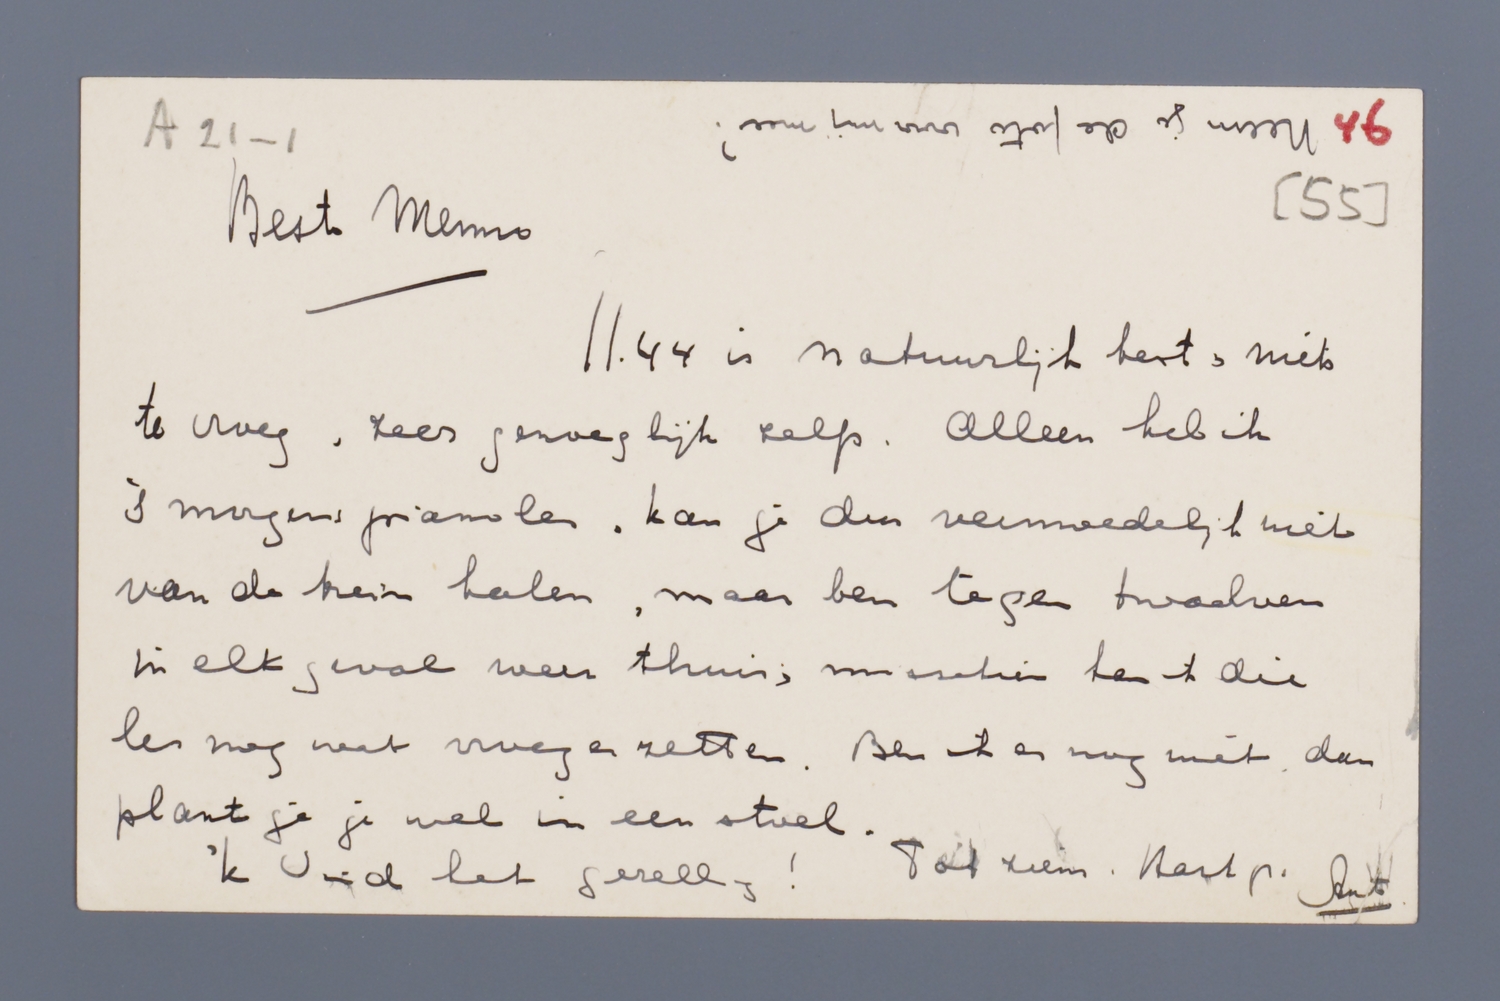 A 21-1
46
Neem je de foto's van mij mee?
[55]
Beste Menno
11.44 is natuurlijk best, niets
te vroeg, zeer genoeglijk zelfs. Alleen heb ik
's morgens pianoles, kan je dus vermoedelijk niet
van de trein halen, maar ben tegen twaalven
in elk geval weer thuis; misschien kan 't die
les nog wat vroeger zetten. Ben ik er nog niet, dan
plant je je wel in een stoel.
'k Vind het gezellig! Tot ziens. Hart. gr. Ant